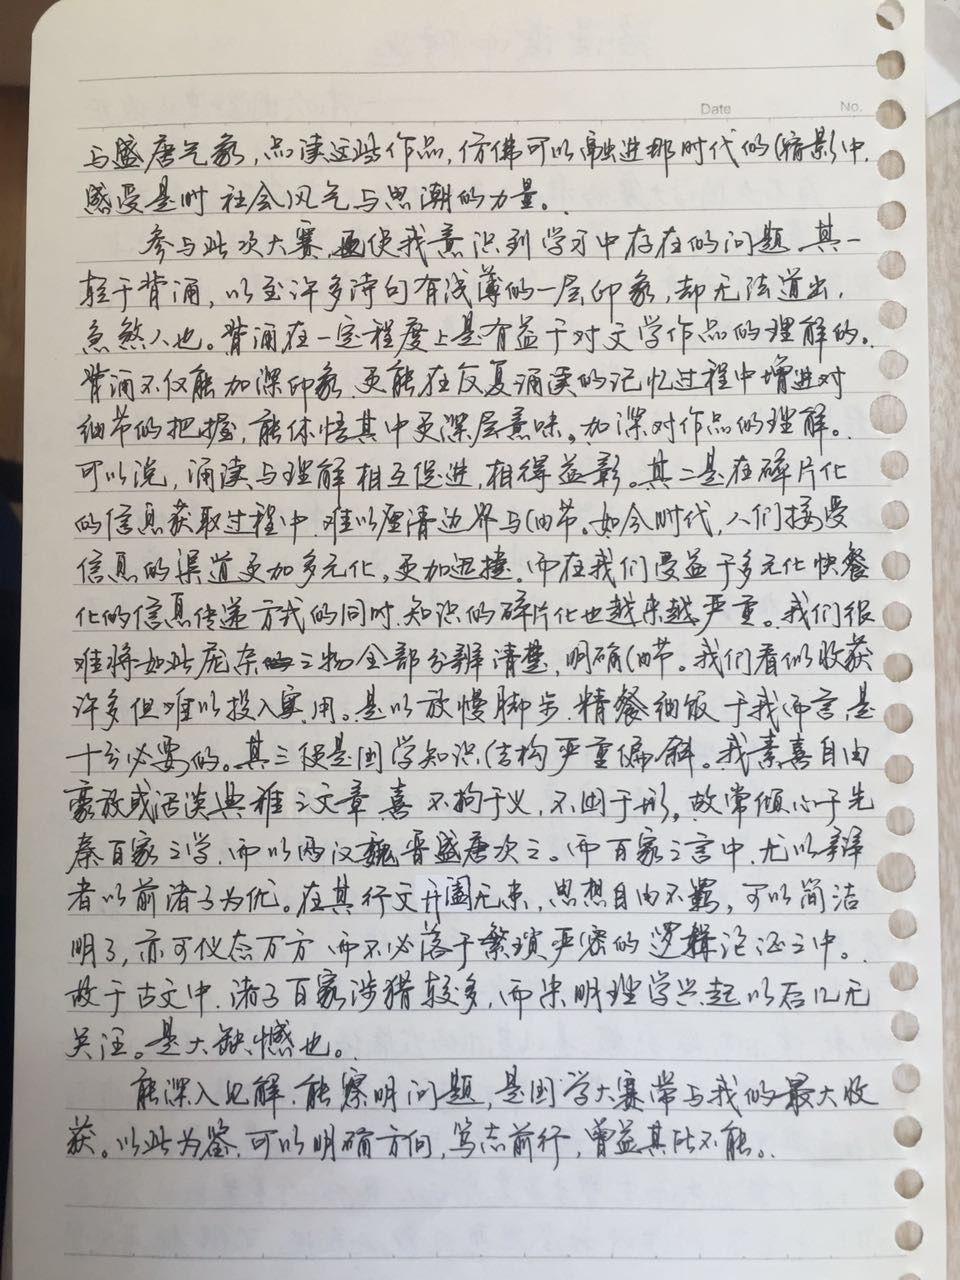 Date No.
与盛唐气象,点读这些作品,仿佛可以融进那时代的缩影中,
感受是时社会风气与思潮的力量。
参与此次大赛,更使我意识到学习中存在的问题 其一
轻于背诵,以至许多诗句有浅薄的一层印象,却无法道出,
急煞人也。背诵在一定程度上是有益于对文学作品的理解的。
背诵不仅能加深印象 更能在反复诵读的记忆过程中增进对
细节的把握,能体悟其中更深层意味。加深对作品的理解。
可以说,诵读与理解相互促进,相得益彰。其二是在碎片化
的信息获取过程中,难以厘清边界与细节。如今时代,人们接受
信息的渠道更加多元化,更加迅捷。而在我们受益于多元化快餐
化的信息传递方式的同时,知识的碎片化也越来越严重。我们很
难将如此庞杂之物全部分辨清楚,明确细节。我们看似收获
许多但难以投入实用。是以放慢脚步,精餐细饭于我而言,是
十分必要的。其三便是国学知识结构严重偏斜。我素喜自由
豪放或活泼典雅之文章 喜不拘于义,不困于形,故常倾心于先
秦百家之学,而以两汉魏晋盛唐次之。而百家之言中,尤以辩
者以前诸子为优。在其行文开阖无束,思想自由不羁,可以简洁
明了,亦可仪态万方 而不必落于繁琐严密的逻辑论证之中。
故于古文中,诸子百家涉猎较多,而宋明理学兴起以后几无
关注。是大缺憾也。
能深入见解,能察明问题,是国学大赛带与我的最大收
获。以此为鉴,可以明确方向,笃志前行,曾益其所不能。